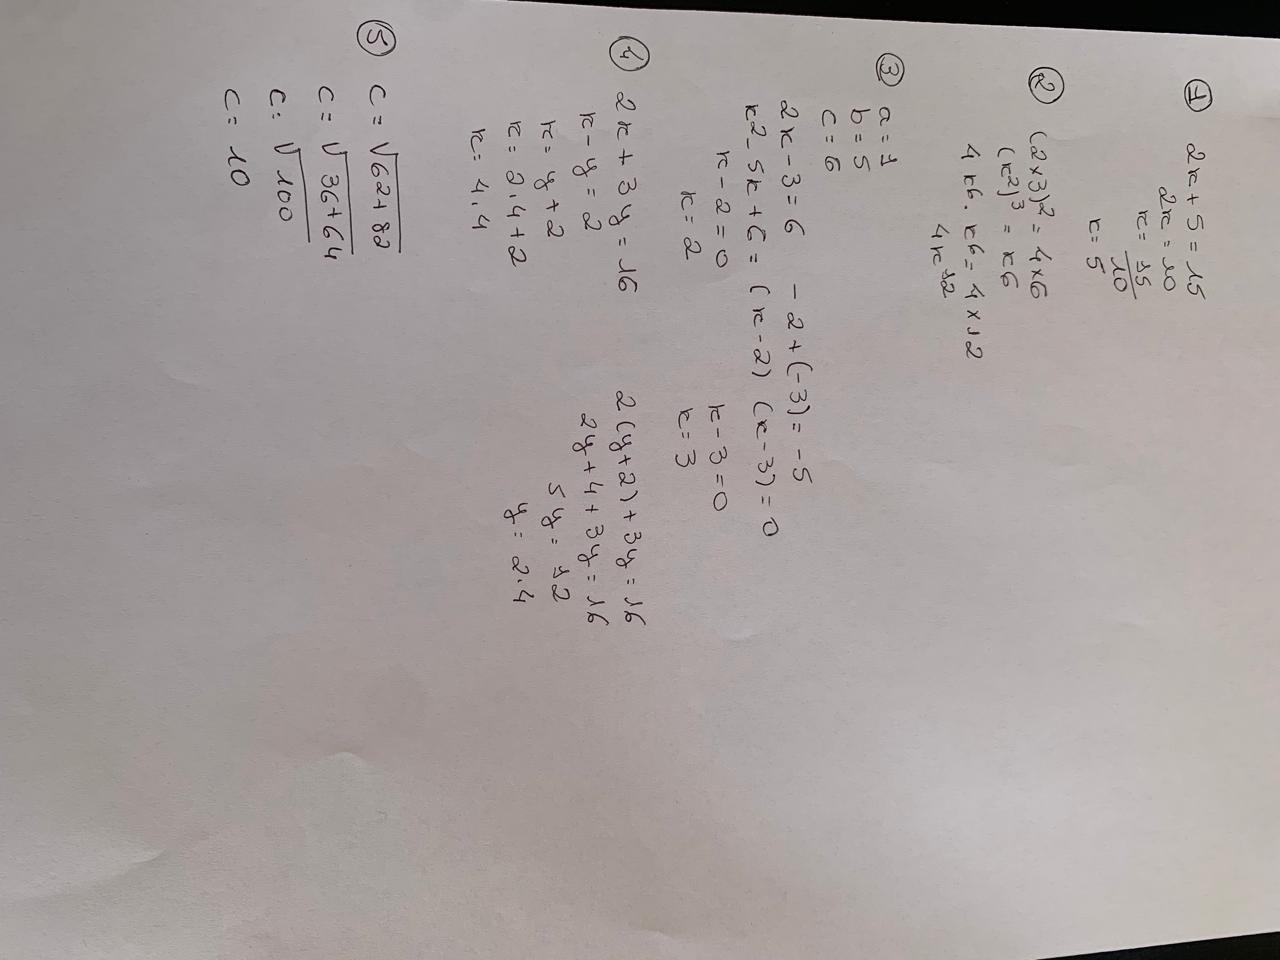 ① 2x + 5 = 15
2x = 10
x = 15
10
x = 5
② (2x3)2 = 4x6
(x2)3 = x6
4x6 · x6 = 4x12
4x12
③ a = 1
b = 5
c = 6
2x - 3 = 6 - 2 + (-3) = -5
x2 - 5x + 6 = (x - 2) (x - 3) = 0
x - 2 = 0 x - 3 = 0
x = 2 x = 3
④ 2x + 3y = 16 2(y + 2) + 3y = 16
x - y = 2 2y + 4 + 3y = 16
x = y + 2 5y = 12
x = 2.4 + 2 y = 2.4
x = 4.4
⑤ c = √62 + 82
c = √36 + 64
c: √100
c = 10